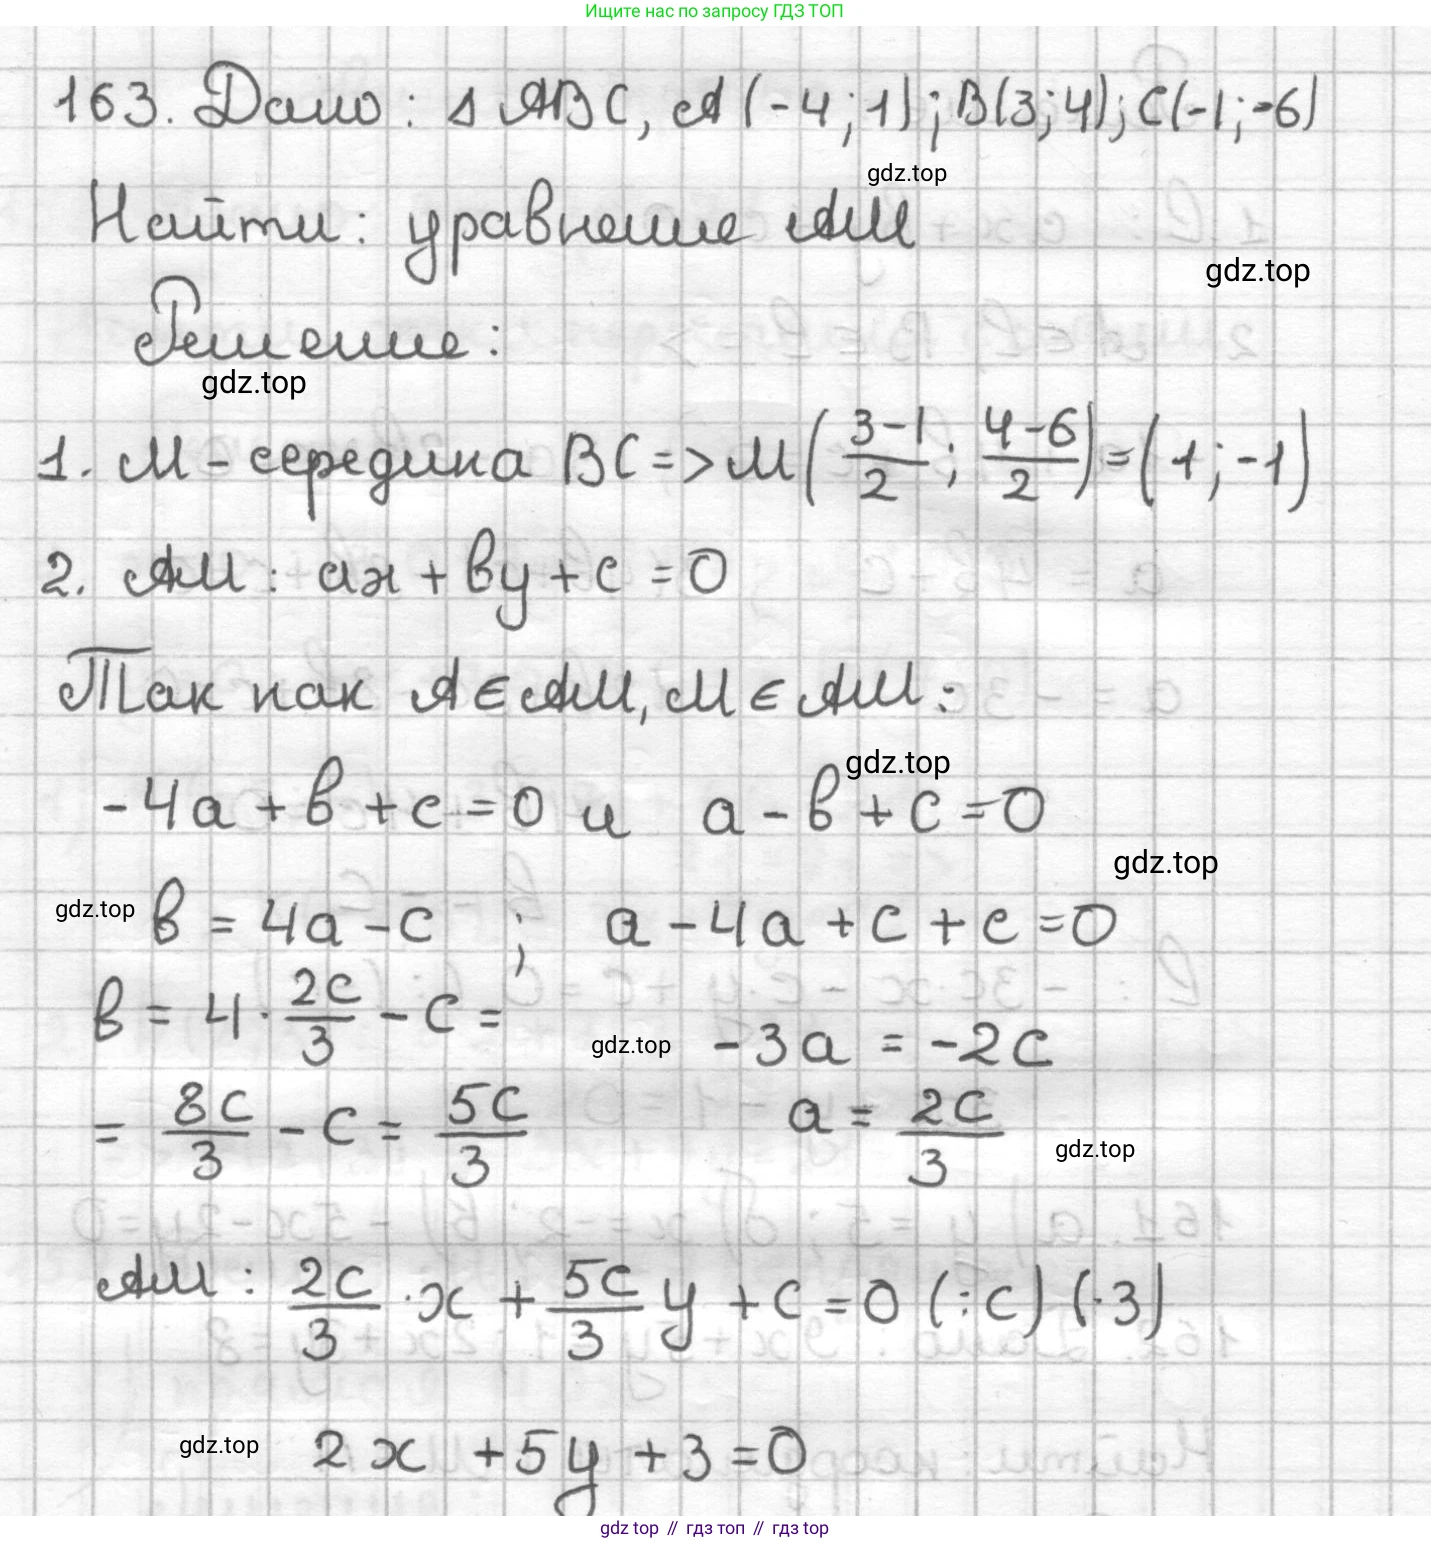 Ищите нас по запросу ГДЗ ТОП
163. Дано: △ ABC, A(-4; 1); B(3; 4); C(-1; -6)
gdz.top
Найти: уравнение AM
gdz.top
Решение:
gdz.top
1. M - середина BC => M((3-1)/2; (4-6)/2) = (1; -1)
2. AM: ax + by + c = 0
Так как A ∈ AM, M ∈ AM:
gdz.top
-4a + b + c = 0 и a - b + c = 0
gdz.top
gdz.top b = 4a - c ; a - 4a + c + c = 0
b = 4 · 2c/3 - c = gdz.top -3a = -2c
= 8c/3 - c = 5c/3 a = 2c/3 gdz.top
AM: 2c/3 · x + 5c/3 y + c = 0 (:c) (·3)
gdz.top 2x + 5y + 3 = 0
gdz top // гдз топ // gdz.top